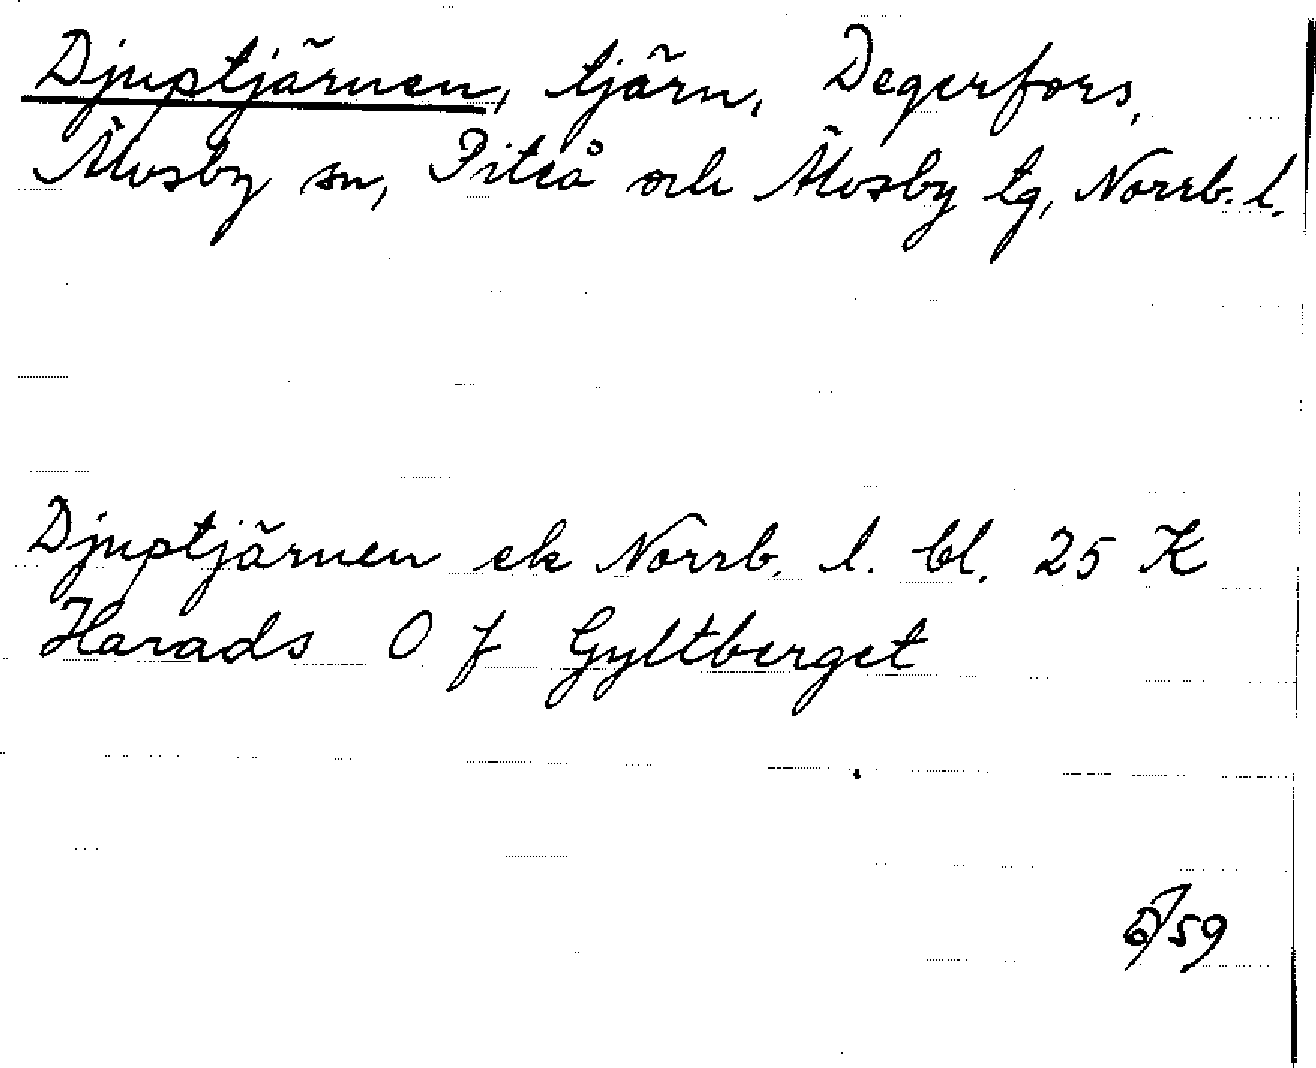 Djuptjärnen, tjärn, Degerfors,
Älvsby sn, Piteå och Älvsby tg, Norrb. l.
Djuptjärnen ek Norrb. l. bl. 25 K
Harads O f Gyltberget
/59